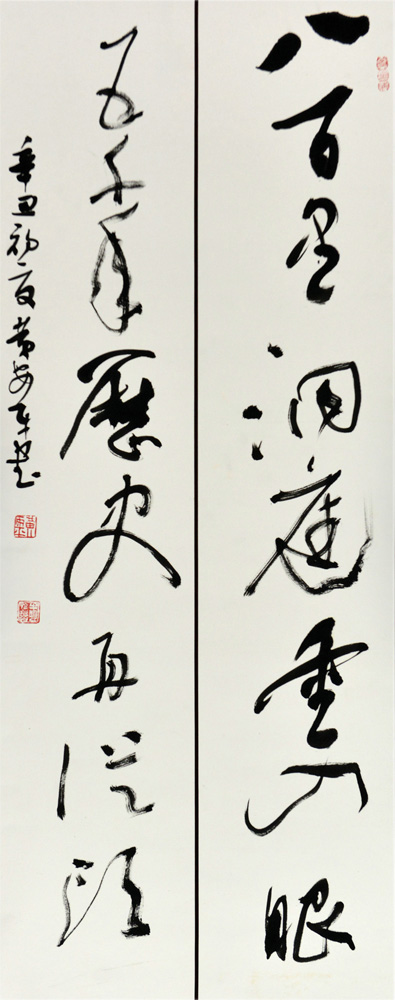 八百里洞庭重入眼
五千年歷史再從頭
辛丑初夏黄安平书